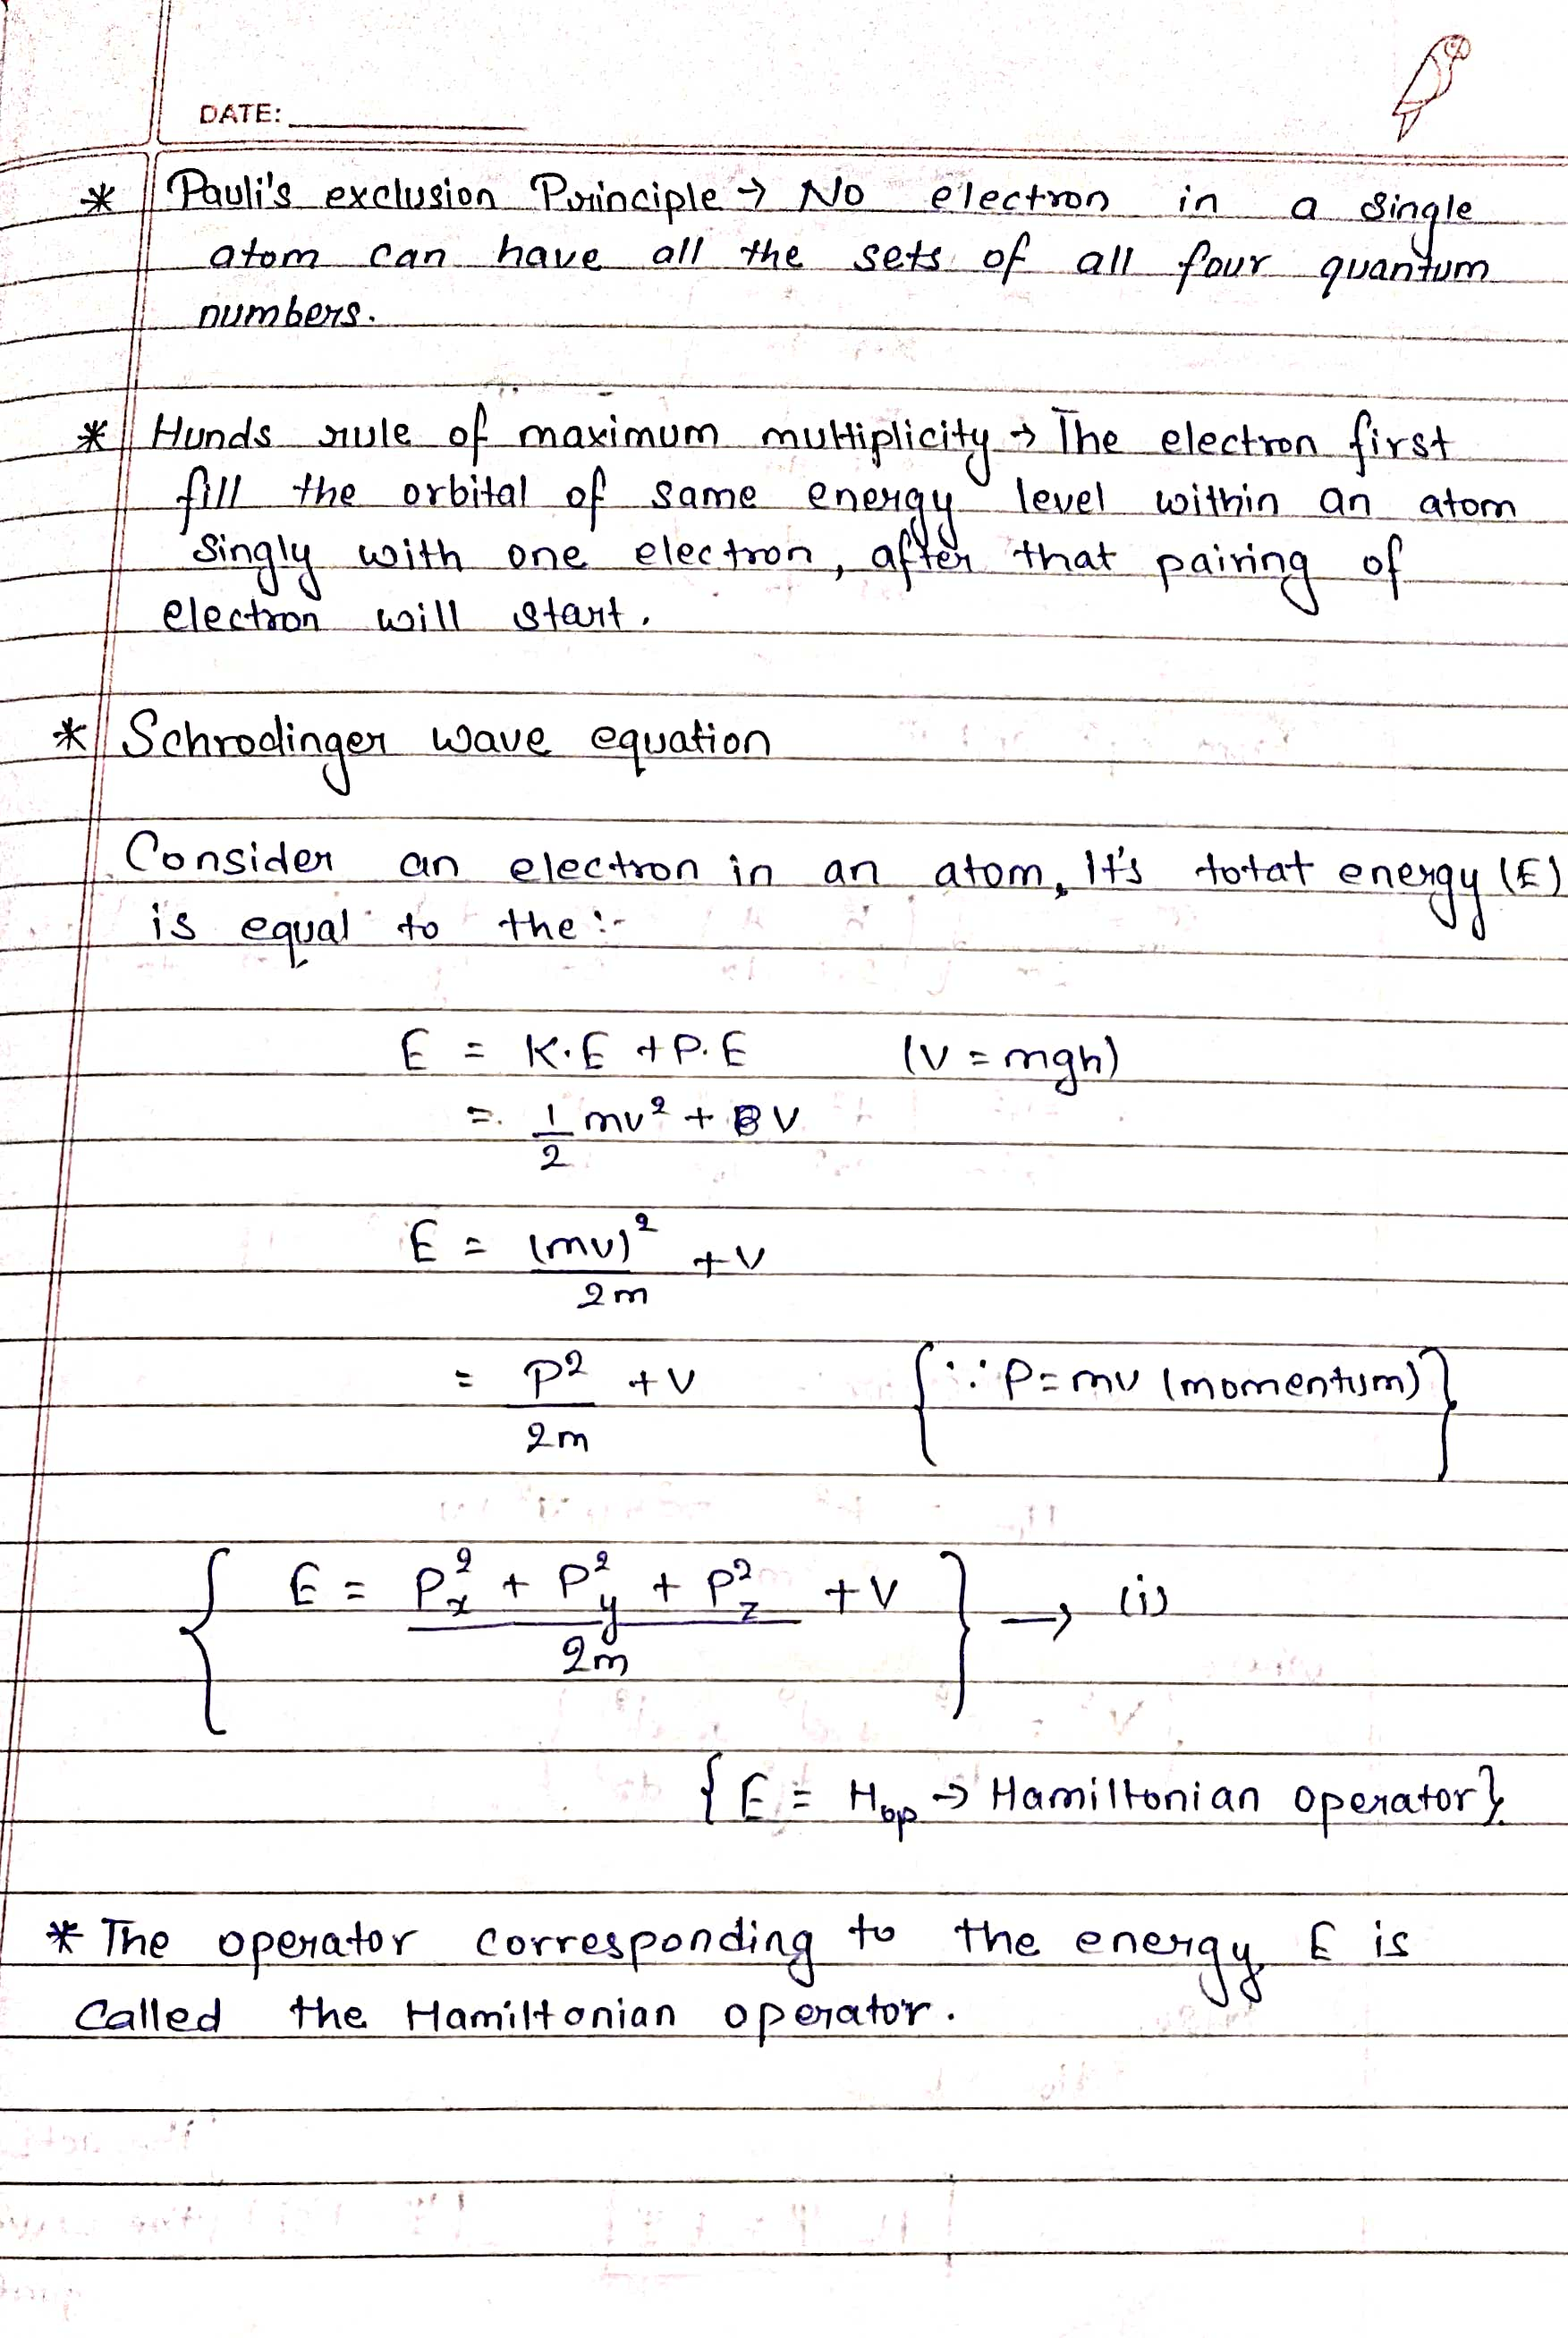 DATE:
* Pauli's exclusion Principle → No electron in a single
atom can have all the sets of all four quantum
numbers.
* Hunds rule of maximum multiplicity → The electron first
fill the orbital of same energy level within an atom
singly with one electron, after that pairing of
electron will start.
* Schrodinger wave equation
Consider an electron in an atom, It's totat energy (E)
is equal to the :-
E = K.E + P.E (V = mgh)
= 1/2 mv² + V
E = (mv)²/2m + V
= P²/2m + V {∵ P = mv (momentum)}
{E = Px² + Py² + Pz²/2m + V} → (i)
{E = Hop → Hamiltonian operator}
* The operator corresponding to the energy E is
called the Hamiltonian operator.